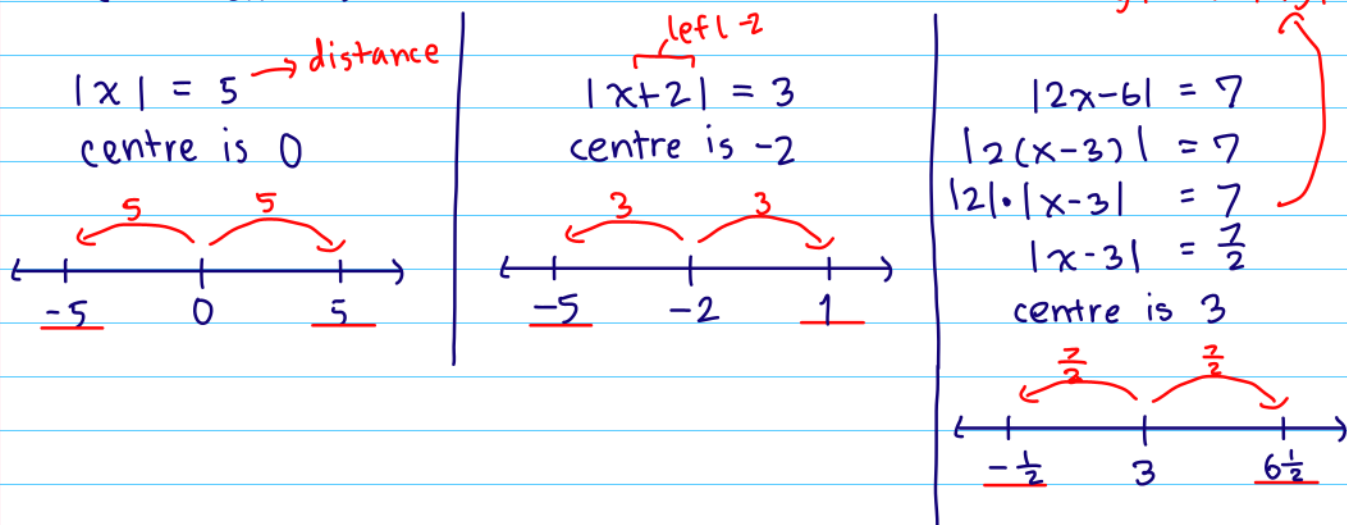 |x| = 5 → distance
centre is 0
5 5
-5 0 5
left -2
|x+2| = 3
centre is -2
3 3
-5 -2 1
|2x-6| = 7
|2(x-3)| = 7
|2|·|x-3| = 7
|x-3| = 7/2
centre is 3
7/2 7/2
-1/2 3 6 1/2